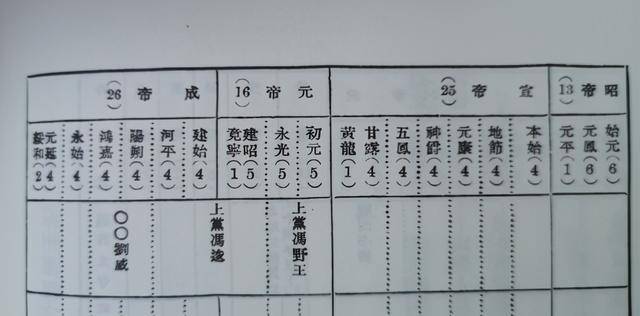 昭帝(13)
宣帝(25)
元帝(16)
成帝(26)
始元(6)
元鳳(6)
元平(1)
本始(4)
地節(4)
元康(4)
神爵(4)
五鳳(4)
甘露(4)
黃龍(1)
初元(5)
永光(5)
建昭(5)
竟寧(1)
建始(4)
河平(4)
陽朔(4)
鴻嘉(4)
永始(4)
元延(4)
綏和(2)
上黨馮野王
上黨馮逡
〇〇劉威